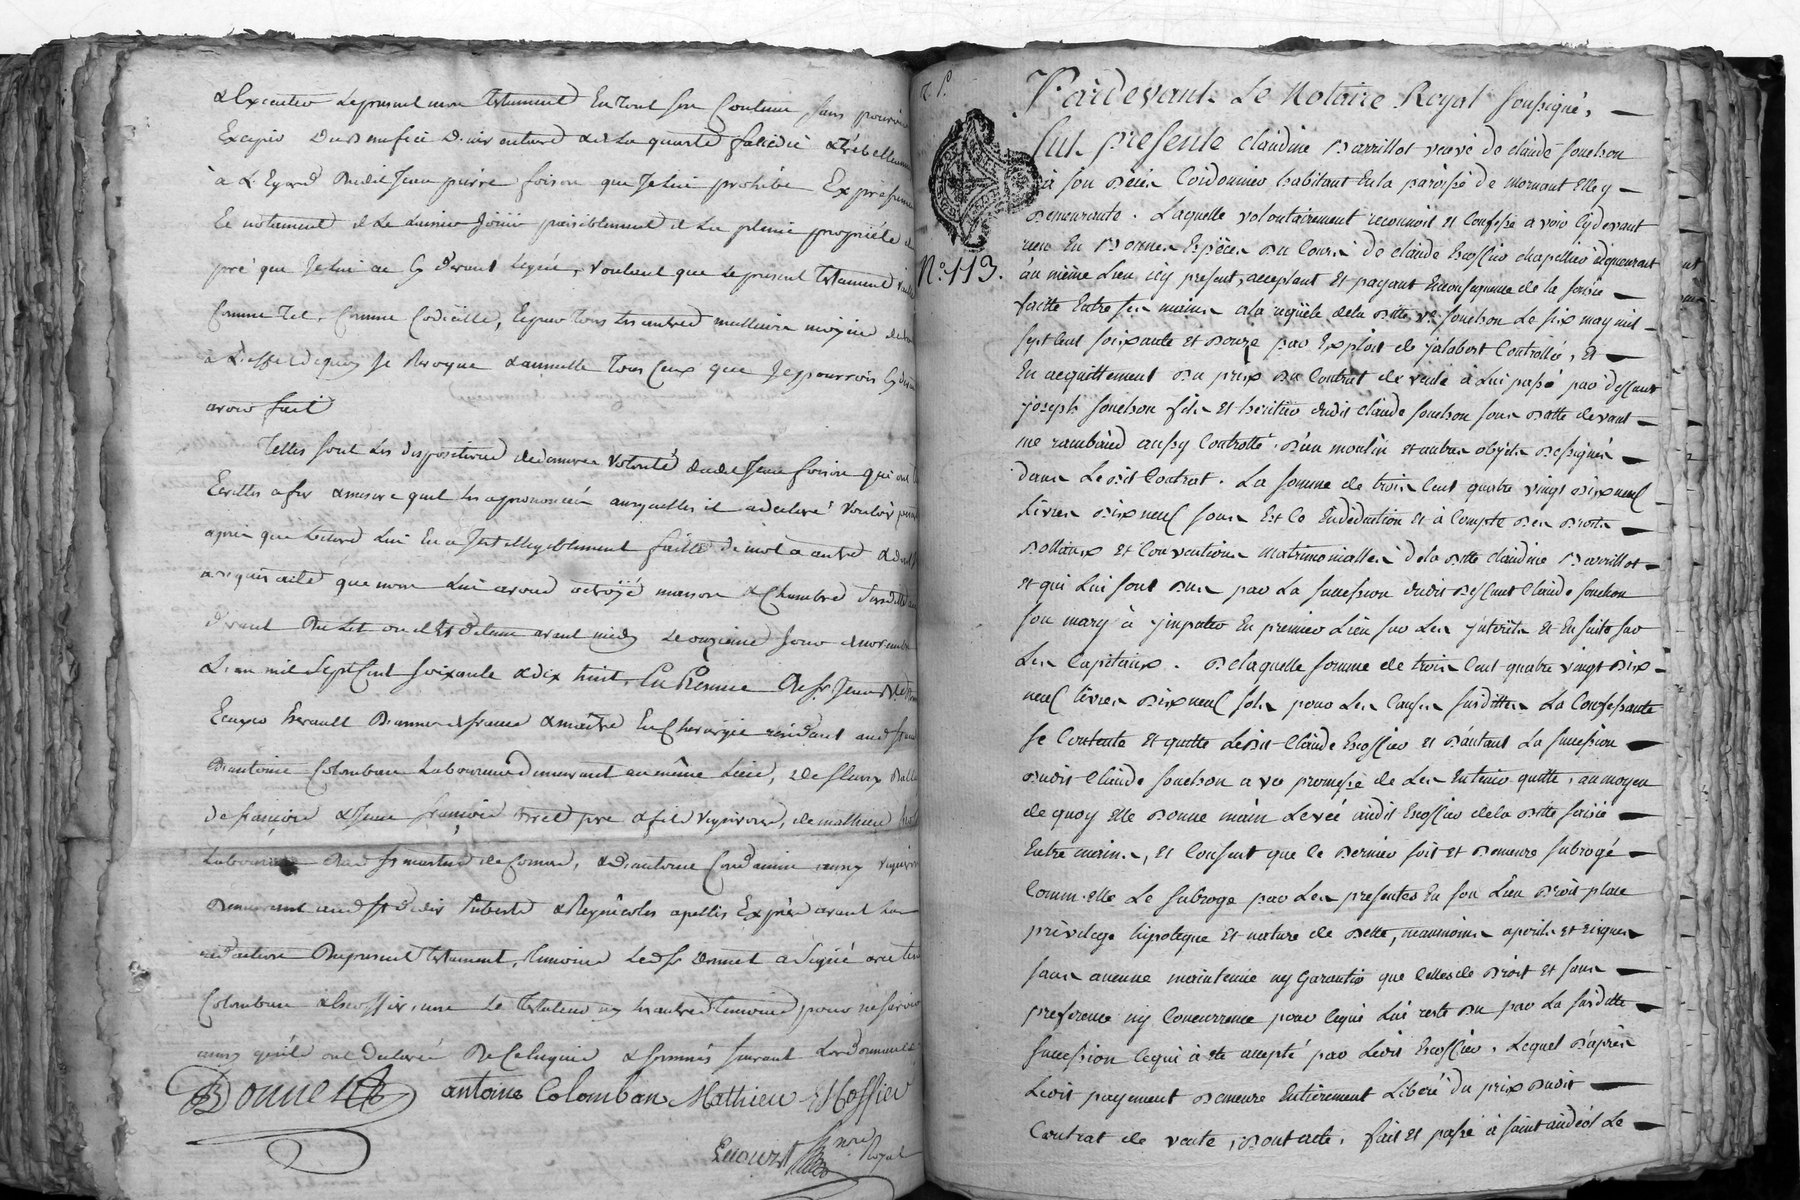 & Executer le present mon testament En tout son Contenu sans pouvoir
Exciper du Benefice d'inventaire & de la quarte falcidie & trebellianne
à L'Egard dudit Jean pierre foison que Je lui prohibe Expressement
Et notamment de le laisser Jouïr paisiblement de la pleine propriété du
pré que Je lui ai Cy devant Legué, voulant que le present testament vaille
Comme tel, Comme Codicille, Et par tous les autres meilleurs moyens de droit
à L'effet dequoy Je Revoque & annulle Tous Ceux que Je pourrois Cy devant
avoir fait
Telles sont les dispositions de derniere Volonté dudit Jean foison qui ont été
Ecrittes a fur & mesure qu'il les a prononcées auxquelles il a declaré Vouloir
après que Lecture Lui En a Eté Intelligiblement faitte de mot a autre &
a requis acte que nous Lui avons octroyé maison & Chambre Susditte
avant midy Le onzieme Jour de novembre
L'an mil Sept Cent soixante & dix huit, En Presence de Sr Jean
Maitre En Chirurgie résidant
D'antoine Colomban Laboureur demeurant au même Lieu, de fleury
de françois & Jean françois pere & fils vignerons, de mathieu
Laboureur de St martin de Cornas, & d'antoine Condamin aussy vigneron
demeurant aud St Didier & Regnicoles apellés Exprès avant la
redaction du present testament, temoins Ledt Sr donnet a Signé avec lesd
Colomban & Escoffier, non Le Testateur ny les autres temoins pour ne savoir
ainsy qu'ils ont declaré De Ce Enquis & sommés suivant L'ordonnance
Donnet antoine Colomban Mathieu Escoffier
nre Royal
Pardevant Le Notaire Royal soussigné,
fut presente claudine Barrillot veuve de claude souchon
à son decès Cordonnier habitant En la paroisse de mornant Elle y
Demeurante. Laquelle volontairement reconnoit et Confesse avoir Cydevant
reçu En Bonnes Espèces du Cours de claude Escoffier chapellier demeurant
N.º 113.
au même Lieu icy present, acceptant et payant En consequence de la saisie
faitte Entre ses mains a la requête de la ditte ve souchon Le six may mil
sept Cent soixante et Douze par Exploit de Jalabert Controllé, et
En acquittement du prix du Contrat de vente à Lui passé par deffunt
Joseph souchon fils et heritier dudit claude souchon sous datte devant
me rambaud aussy Controllé, d'un moulin et autres objets Designés
dans Le dit Contrat. La somme de trois Cent quatre vingt Dix neuf
Livres Dix neuf sous Et Ce En deduction et à Compte des droits
Dottaux et Conventions Matrimonialles de la ditte claudine Barrillot
et qui Lui sont dus par La succession dudit deffunt Claude souchon
son mary à imputer En premier Lieu sur Les Interets Et En suite sur
Les Capitaux. De laquelle somme de trois Cent quatre vingt dix
neuf Livres Dix neuf sols pour Les Causes susdittes La Confessante
se Contente et quitte Ledit Claude Escoffier et d'autant La succession
dudit Claude souchon avec promesse de Les En tenir quitte, au moyen
de quoy Elle Donne main Levée audit Escoffier de la ditte saisie
Entre mains, et Consent que Ce Dernier soit et Demeure subrogé
Comm'elle Le subroge par Les presentes En son Lieu droit place
privilege hipoteque et nature de dette, neanmoins a perils et risques
sans aucune maintenue ny Garantie que Celles de Droit et sans
preference ny Concurrence pour Ce qui Lui reste du par La susditte
succession Ce qui a été accepté par Ledit Escoffier. Lequel d'après
Ledit payement Demeure Entièrement Liberé du prix dudit
Contrat de vente, Dont acte, fait et passé à saint andéol Le